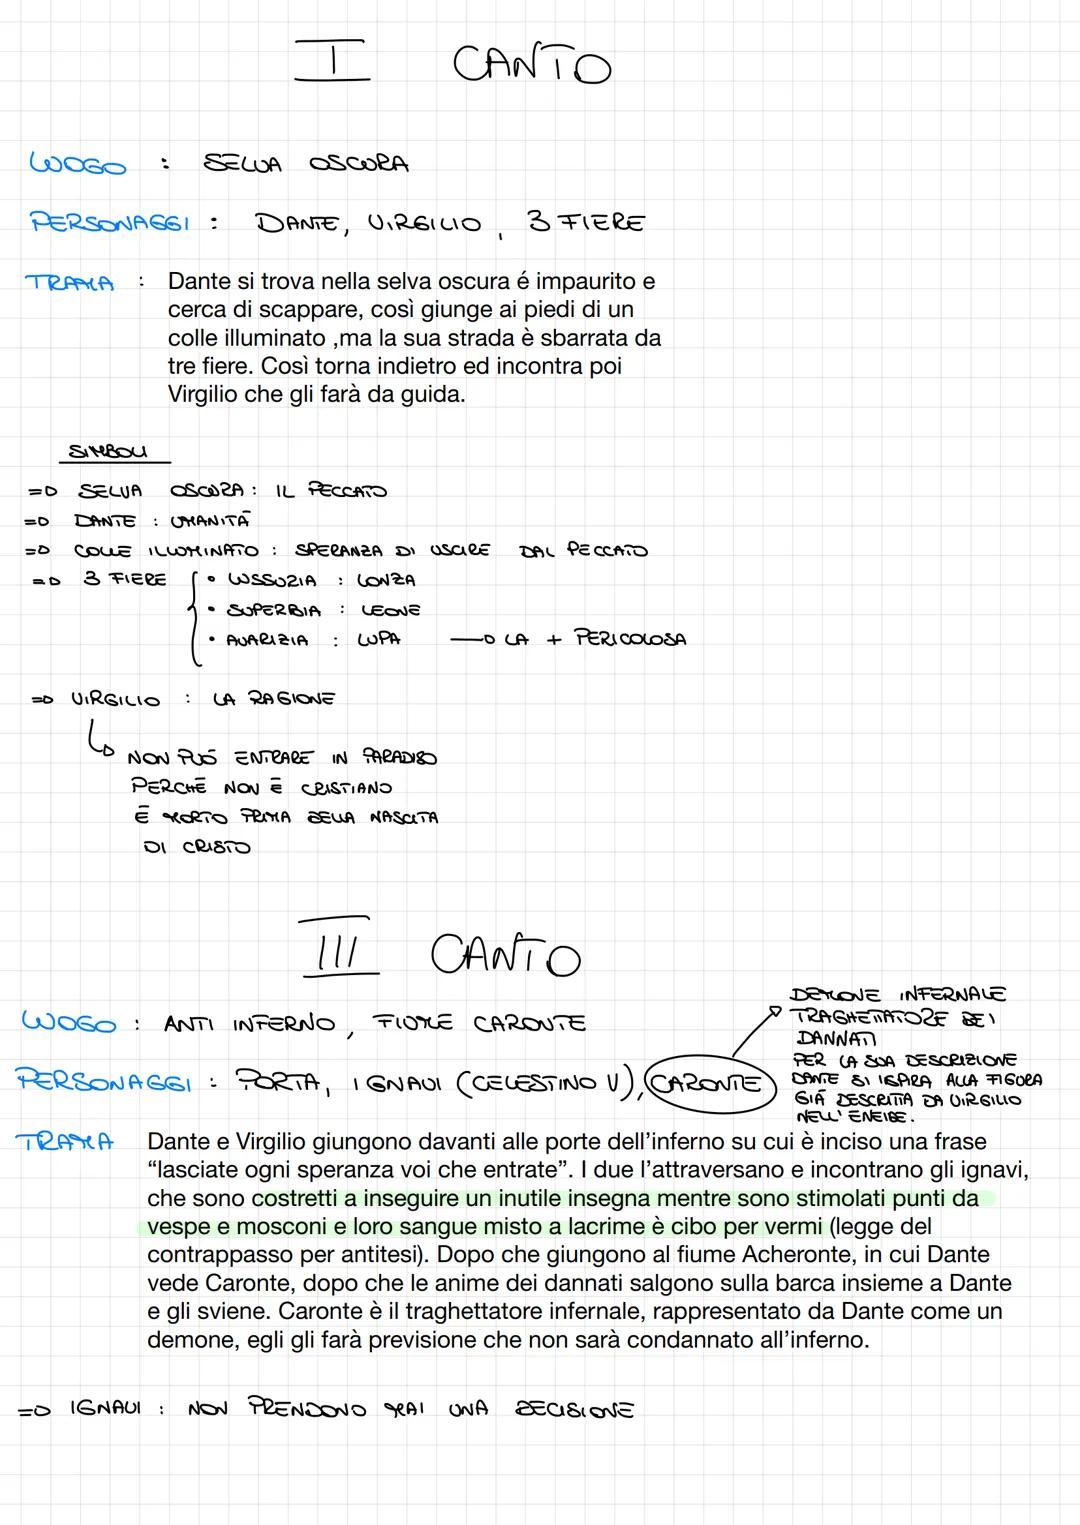 I CANTO
LUOGO : SELVA OSCURA
PERSONAGGI : DANTE, VIRGILIO, 3 FIERE
TRAMA : Dante si trova nella selva oscura é impaurito e
cerca di scappare, così giunge ai piedi di un
colle illuminato ,ma la sua strada è sbarrata da
tre fiere. Così torna indietro ed incontra poi
Virgilio che gli farà da guida.
SIMBOLI
=D SELVA OSCURA : IL PECCATO
=D DANTE : UMANITÀ
=D COLLE ILLUMINATO : SPERANZA DI USCIRE DAL PECCATO
=D 3 FIERE { • LUSSURIA : LONZA
• SUPERBIA : LEONE
• AVARIZIA : LUPA —D LA + PERICOLOSA
=D VIRGILIO : LA RAGIONE
NON PUÓ ENTRARE IN PARADISO
PERCHÉ NON È CRISTIANO
È MORTO PRIMA DELLA NASCITA
DI CRISTO
III CANTO
LUOGO : ANTI INFERNO, FIUME CARONTE
PERSONAGGI : PORTA, IGNAVI (CELESTINO V), CARONTE
DEMONE INFERNALE
TRAGHETTATORE DEI
DANNATI
PER LA SUA DESCRIZIONE
DANTE SI ISPIRA ALLA FIGURA
GIÁ DESCRITTA DA VIRGILIO
NELL' ENEIDE.
TRAMA Dante e Virgilio giungono davanti alle porte dell'inferno su cui è inciso una frase
“lasciate ogni speranza voi che entrate”. I due l'attraversano e incontrano gli ignavi,
che sono costretti a inseguire un inutile insegna mentre sono stimolati punti da
vespe e mosconi e loro sangue misto a lacrime è cibo per vermi (legge del
contrappasso per antitesi). Dopo che giungono al fiume Acheronte, in cui Dante
vede Caronte, dopo che le anime dei dannati salgono sulla barca insieme a Dante
e gli sviene. Caronte è il traghettatore infernale, rappresentato da Dante come un
demone, egli gli farà previsione che non sarà condannato all'inferno.
=D IGNAVI : NON PRENDONO MAI UNA DECISIONE